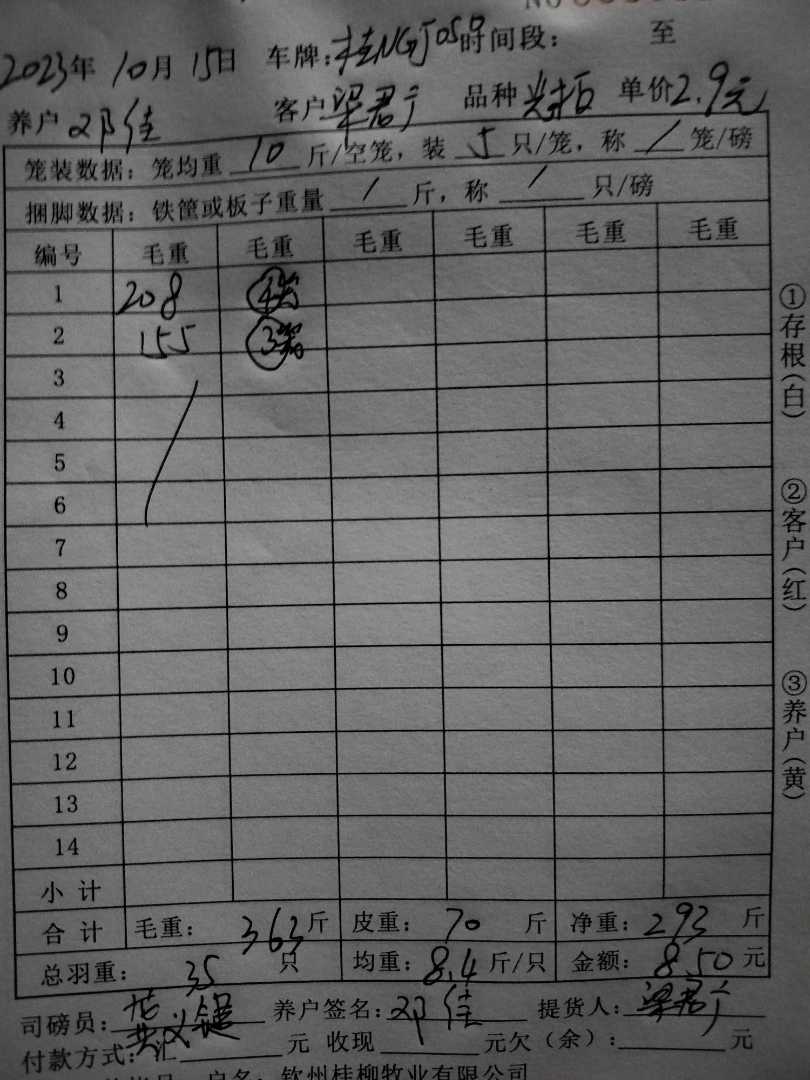 NO
2023年 10月 15日 车牌:桂NGJ059 时间段: 至
养户 邓佳 客户 梁君广 品种 单价2.9元
笼装数据: 笼均重 10 斤/空笼, 装 5 只/笼, 称 / 笼/磅
捆脚数据: 铁筐或板子重量 / 斤, 称 / 只/磅
编号 毛重 毛重 毛重 毛重 毛重 毛重
1 208 4笼
2 155 3笼
3
4
5
6
7
8
9
10
11
12
13
14
小计
合计 毛重: 363 斤 皮重: 70 斤 净重: 293 斤
总羽重: 35 只 均重: 8.4 斤/只 金额: 850 元
司磅员: 养户签名: 邓佳 提货人: 梁君广
付款方式: 汇 元 收现 元 欠(余): 元
户名: 钦州桂柳牧业有限公司
①存根(白)
②客户(红)
③养户(黄)